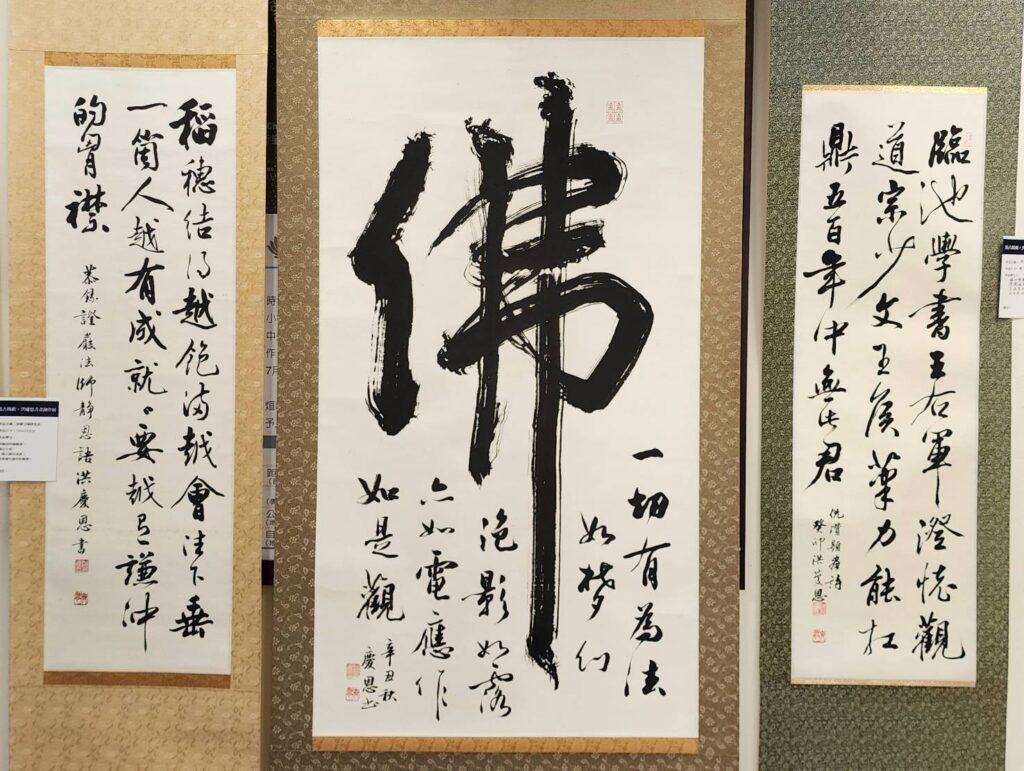 稻穗結得越飽滿越會往下垂
一箇人越有成就〻要越有謙沖
的胷襟
恭錄證嚴法師靜思語洪慶恩書
佛
一切有為法
如夢幻
泡影如露
亦如電應作
如是觀
辛丑秋
慶恩書
臨池學書王右軍澄懷觀
道宗少文王侯筆力能扛
鼎五百年中無此君
癸卯洪慶恩